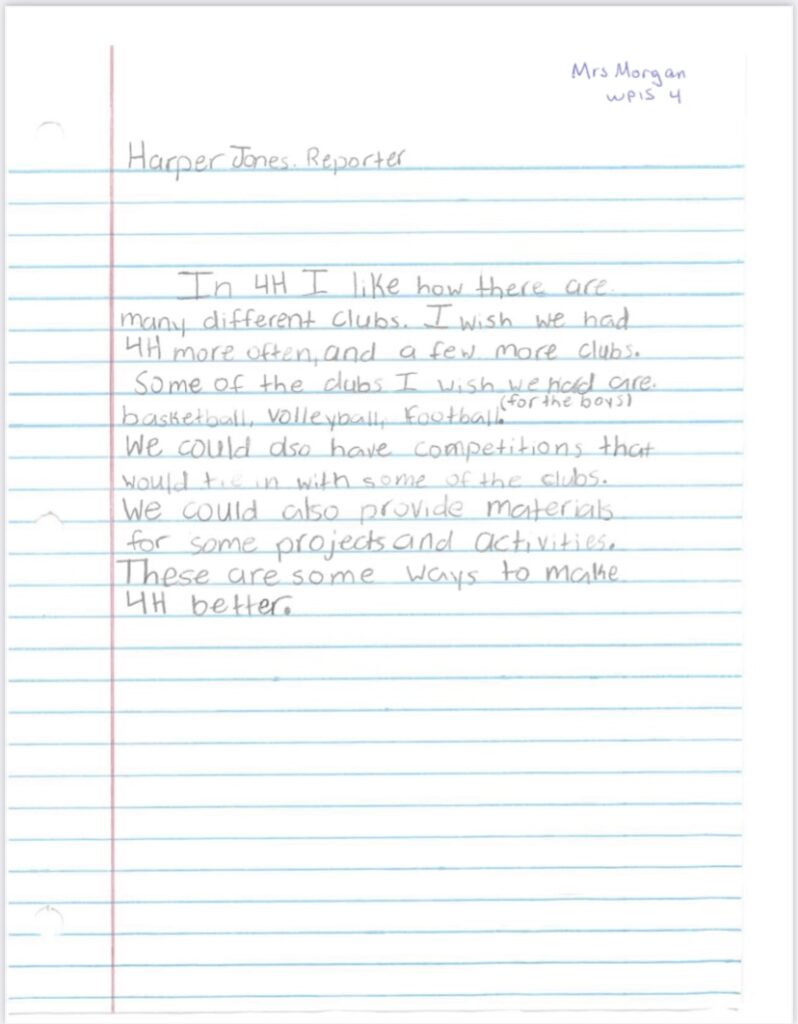 Mrs Morgan
WPIS 4
Harper Jones. Reporter
In 4H I like how there are
many different clubs. I wish we had
4H more often, and a few more clubs.
Some of the clubs I wish we had are.
basketball, volleyball, football. (for the boys)
We could also have competitions that
would tie in with some of the clubs.
We could also provide materials
for some projects and activities.
These are some ways to make
4H better.